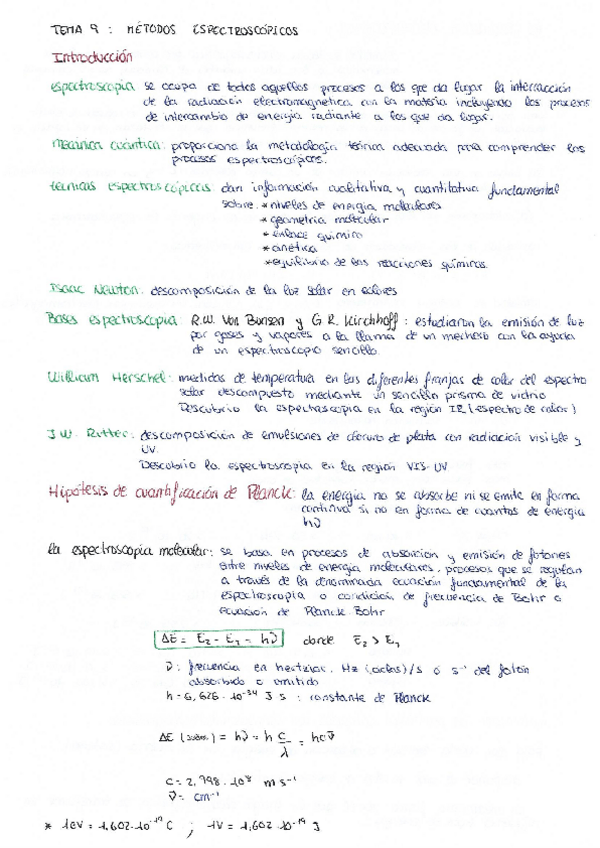 TEMA 9 : MÉTODOS ESPECTROSCÓPICOS
Introducción
espectroscopia se ocupa de todos aquellos procesos a los que da lugar la interacción
de la radiación electromagnética con la materia incluyendo los procesos
de intercambio de energía radiante a los que da lugar.
mecánica cuántica: proporciona la metodología teórica adecuada para comprender los
procesos espectroscópicos.
técnicas espectroscópicas: dan información cualitativa y cuantitativa fundamental
sobre: *niveles de energía moleculares
*geometría molecular
*enlace químico
*cinética
*equilibrio de las reacciones químicas.
Isaac Newton: descomposición de la luz solar en colores
Bases espectroscopia R.W. Von Bunsen y G.R. Kirchhoff : estudiaron la emisión de luz
por gases y vapores a la llama de un mechero con la ayuda
de un espectroscopio sencillo.
William Herschel: medidas de temperatura en las diferentes franjas de color del espectro
solar descompuesto mediante un sencillo prisma de vidrio
Descubrio la espectroscopia en la región IR (espectro de calor)
J.W. Ritter: descomposición de emulsiones de cloruro de plata con radiacion visible y
UV.
Descubrio la espectroscopia en la región VIS-UV.
Hipótesis de cuantificación de Planck: la energía no se absorbe ni se emite en forma
continua si no en forma de cuantos de energía
hν
la espectroscopia molecular: se basa en procesos de absorcion y emisión de fotones
entre niveles de energía moleculares, procesos que se regulan
a través de la denominada ecuación fundamental de la
espectroscopia o condición de frecuencia de Bohr o
ecuación de Planck Bohr
ΔE = E₂ - E₁ = hν donde E₂ > E₁
ν: frecuencia en hertzios, Hz (ciclos)/s ó s⁻¹ del fotón
absorbido o emitido
h = 6,626 · 10⁻³⁴ J s : constante de Planck
ΔE = hν = h c/λ = hcν̄
c = 2,998 · 10⁸ m s⁻¹
ν̄ = cm⁻¹
* 1eV = 1,602·10⁻¹⁹ C ; 1V = 1,602·10⁻¹⁹ J